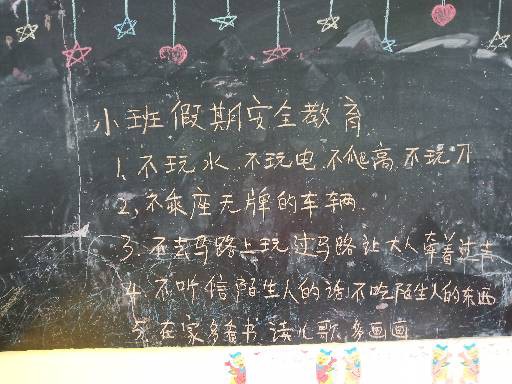 小班假期安全教育
1、不玩水、不玩电、不爬高、不玩刀
2、不乘座无牌的车辆
3、不去马路上玩过马路让大人牵着过去
4、不听信陌生人的话、不吃陌生人的东西
5、在家多看书、读儿歌、多画画